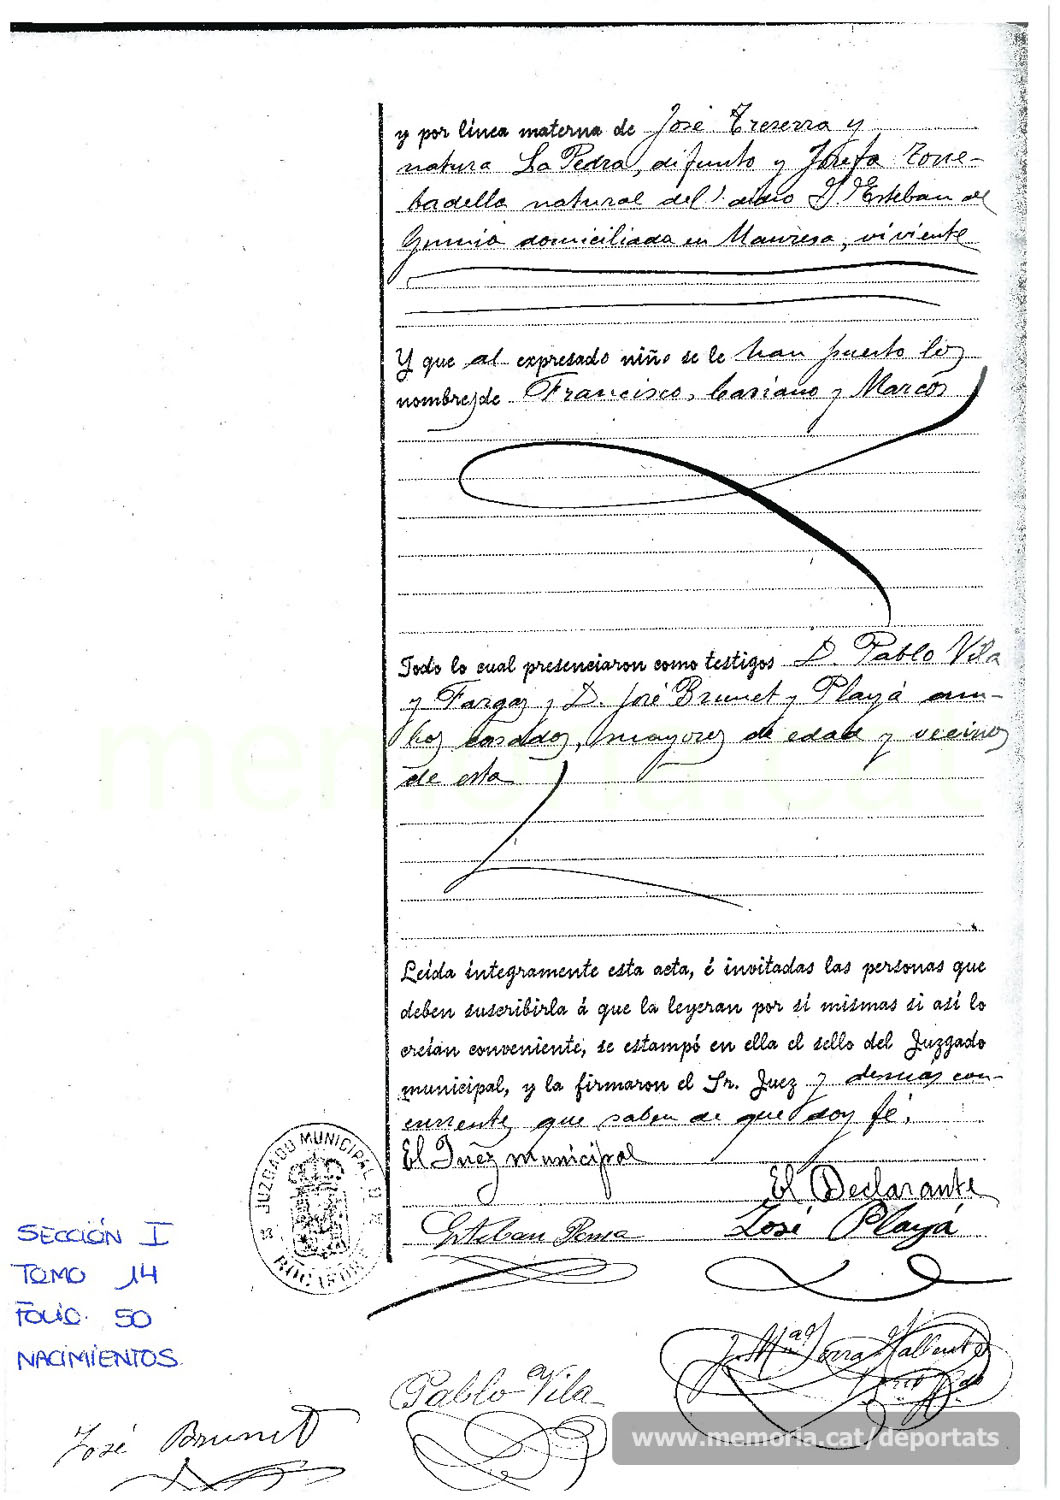 y por línea materna de José Treserra y
natura La Pedra, difunto y Josefa Torre-
badella natural del S. Esteban de
domiciliada en Manresa, viviente
Y que al expresado niño se le han puesto los
nombres de Francisco, Casiano y Marcos
Todo lo cual presenciaron como testigos D. Pablo Vila
y Fargas y D. José Brunet y Playá am-
bos casados, mayores de edad y vecinos
de esta
Leída íntegramente esta acta, é invitadas las personas que
deben suscribirla á que la leyeran por sí mismas si así lo
creían conveniente, se estampó en ella el sello del Juzgado
municipal, y la firmaron el Sr. Juez y demás con-
currentes que saben de que doy fé.
El Juez municipal
El Declarante
Esteban Roma
José Playá
JUZGADO MUNICIPAL DE
ROCAFORT
SECCIÓN I
TOMO 14
FOLIO 50
NACIMIENTOS
Pablo Vila
José Brunet
memoria.cat
www.memoria.cat/deportats